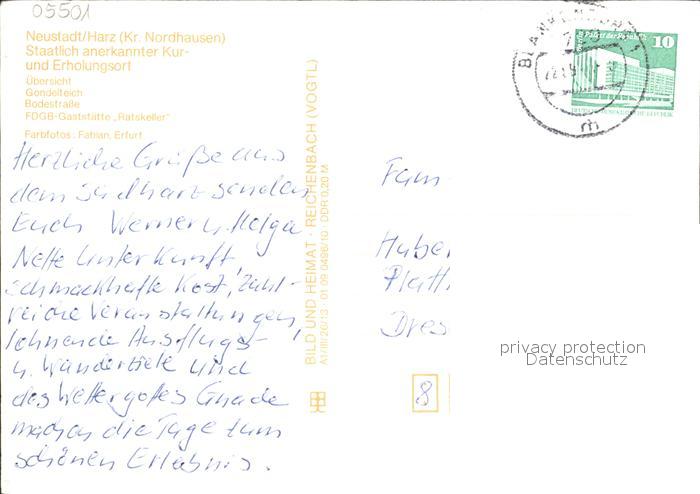 05501
Neustadt/Harz (Kr. Nordhausen)
Staatlich anerkannter Kur-
und Erholungsort
Übersicht
Gondelteich
Bodestraße
FDGB-Gaststätte „Ratskeller"
Farbfotos: Fabian, Erfurt
Herzliche Grüße aus
dem Südharz senden
Euch Werner u. Helga
Nette Unterkunft,
schmackhafte Kost, zahl-
reiche Veranstaltungen,
lohnende Ausflugs-
u. Wanderziele und
des Wettergottes Gnade
machen die Tage zum
schönen Erlebnis.
BILD UND HEIMAT · REICHENBACH (VOGTL)
A1/III/26/13 · 01 09 0496/10 · DDR 0,20 M
10
Fam
Huber
Platt
Dres
8
privacy protection
Datenschutz